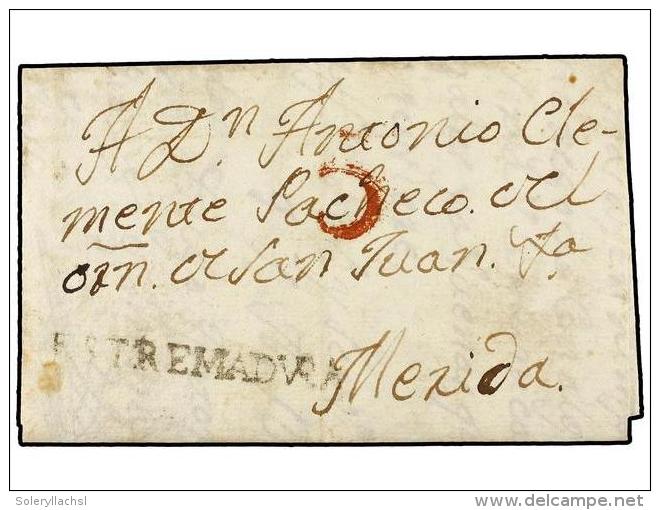 A Dn Antonio Cle-
mente Pacheco. del
orn. de San Juan. Ya
ESTREMADURA
Merida.
Soleryllachsl
delcampe.net